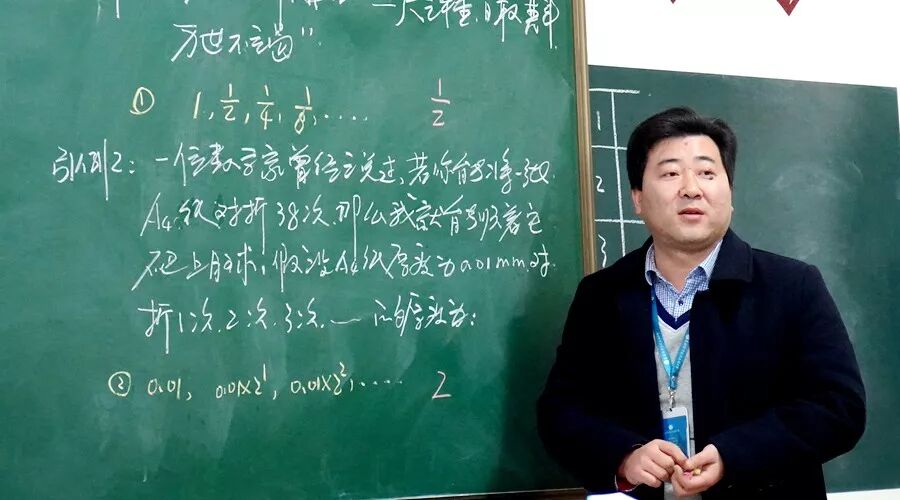 一尺之棰，日取其半，
万世不竭”
① 1，1/2，1/4，1/8，···· 1/2
引例2：一位数学家曾经说过，若你能将一张
A4纸对折38次，那么我就能顺着它
爬上月球，假设A4纸厚度为0.01mm，对
折1次、2次、3次、—的厚度为：
② 0.01，0.01×2¹，0.01×2²，···· 2
1
2
3